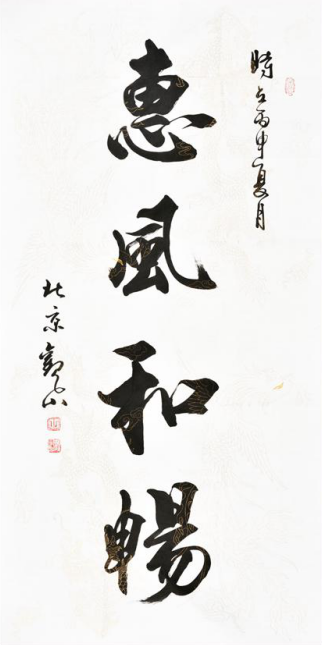 時在丙申夏月
惠風和暢
北京